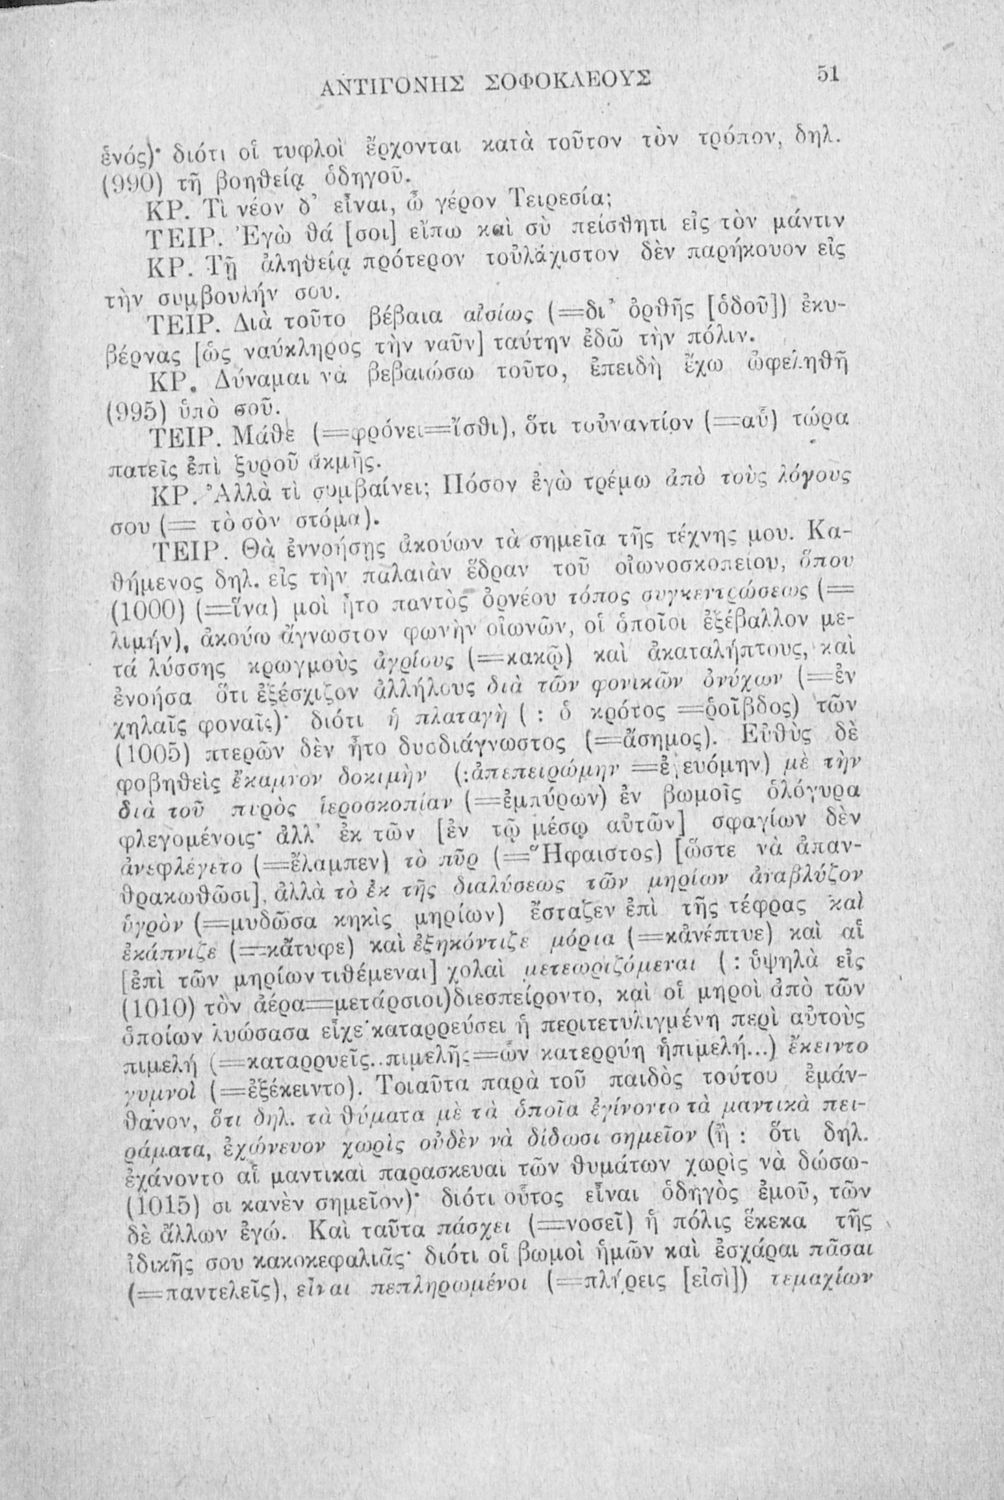 ΑΝΤΙΓΟΝΗΣ ΣΟΦΟΚΛΕΟΥΣ 51
ἑνός)· διότι οἱ τυφλοὶ ἔρχονται κατὰ τοῦτον τὸν τρόπον, δηλ.
(990) τῇ βοηθείᾳ ὁδηγοῦ.
ΚΡ. Τὶ νέον δ’ εἶναι, ὦ γέρον Τειρεσία;
ΤΕΙΡ. Ἐγὼ θά [σοι] εἴπω καὶ σὺ πείσθητι εἰς τὸν μάντιν
ΚΡ. Τῇ ἀληθείᾳ πρότερον τοὐλάχιστον δὲν παρήκουον εἰς
τὴν συμβουλήν σου.
ΤΕΙΡ. Διὰ τοῦτο βέβαια αἰσίως (=δι’ ὀρθῆς [ὁδοῦ]) ἐκυ-
βέρνας [ὡς ναύκληρος τὴν ναῦν] ταύτην ἐδῶ τὴν πόλιν.
ΚΡ. Δύναμαι νὰ βεβαιώσω τοῦτο, ἐπειδὴ ἔχω ὠφεληθῆ
(995) ὑπὸ σοῦ.
ΤΕΙΡ. Μάθε (=φρόνει=ἴσθι), ὅτι τοὐναντίον (=αὖ) τώρα
πατεῖς ἐπὶ ξυροῦ ἀκμῆς.
ΚΡ. Ἀλλὰ τὶ συμβαίνει; Πόσον ἐγὼ τρέμω ἀπὸ τοὺς λόγους
σου (= τὸ σὸν στόμα).
ΤΕΙΡ. Θὰ ἐννοήσῃς ἀκούων τὰ σημεῖα τῆς τέχνης μου. Κα-
θήμενος δηλ. εἰς τὴν παλαιὰν ἕδραν τοῦ οἰωνοσκοπείου, ὅπου
(1000) (=ἵνα) μοὶ ἦτο παντὸς ὀρνέου τόπος συγκεντρώσεως (=
λιμήν), ἀκούω ἄγνωστον φωνὴν οἰωνῶν, οἱ ὁποῖοι ἐξέβαλλον με-
τά λύσσης κρωγμοὺς ἀγρίους (=κακῷ) καὶ ἀκαταλήπτους, καὶ
ἐνοήσα ὅτι ἐξέσχιζον ἀλλήλους διὰ τῶν φονικῶν ὀνύχων (=ἐν
χηλαῖς φοναῖς)· διότι ἡ πλαταγὴ ( : ὁ κρότος =ῥοῖβδος) τῶν
(1005) πτερῶν δὲν ἦτο δυσδιάγνωστος (=ἄσημος). Εὐθὺς δὲ
φοβηθεὶς ἔκαμνον δοκιμὴν (:ἀπεπειρώμην =ἐγευόμην) μὲ τὴν
διὰ τοῦ πυρὸς ἱεροσκοπίαν (=ἐμπύρων) ἐν βωμοῖς ὁλόγυρα
φλεγομένοις· ἀλλ’ ἐκ τῶν [ἐν τῷ μέσῳ αὐτῶν] σφαγίων δὲν
ἀνεφλέγετο (=ἔλαμπεν) τὸ πῦρ (=Ἥφαιστος) [ὥστε νὰ ἀπαν-
θρακωθῶσι], ἀλλὰ τὸ ἐκ τῆς διαλύσεως τῶν μηρίων ἀναβλύζον
ὑγρὸν (=μυδῶσα κηκὶς μηρίων) ἔσταζεν ἐπὶ τῆς τέφρας καὶ
ἐκάπνιζε (=κἄτυφε) καὶ ἐξηκόντιζε μόρια (=κἀνέπτυε) καὶ αἱ
[ἐπὶ τῶν μηρίων τιθέμεναι] χολαὶ μετεωριζόμεναι ( : ὑψηλὰ εἰς
(1010) τὸν ἀέρα=μετάρσιοι)διεσπείροντο, καὶ οἱ μηροὶ ἀπὸ τῶν
ὁποίων λυώσασα εἶχε καταρρεύσει ἡ περιτετυλιγμένη περὶ αὐτοὺς
πιμελή (=καταρρυεῖς..πιμελῆς=ὧν κατερρύη ἡπιμελή...) ἔκειντο
γυμνοὶ (=ἐξέκειντο). Τοιαῦτα παρὰ τοῦ παιδὸς τούτου ἐμάν-
θανον, ὅτι δηλ. τὰ θύματα μὲ τὰ ὁποῖα ἐγίνοντο τὰ μαντικὰ πει-
ράματα, ἐχώνευον χωρὶς οὐδὲν νὰ δίδωσι σημεῖον (ἢ : ὅτι δηλ.
ἐχάνοντο αἱ μαντικαὶ παρασκευαὶ τῶν θυμάτων χωρὶς νὰ δώσω-
(1015) σι κανὲν σημεῖον)· διότι οὗτος εἶναι ὁδηγὸς ἐμοῦ, τῶν
δὲ ἄλλων ἐγώ. Καὶ ταῦτα πάσχει (=νοσεῖ) ἡ πόλις ἕκεκα τῆς
ἰδικῆς σου κακοκεφαλιᾶς· διότι οἱ βωμοὶ ἡμῶν καὶ ἐσχάραι πᾶσαι
(=παντελεῖς), εἶναι πεπληρωμένοι (=πλήρεις [εἰσὶ]) τεμαχίων